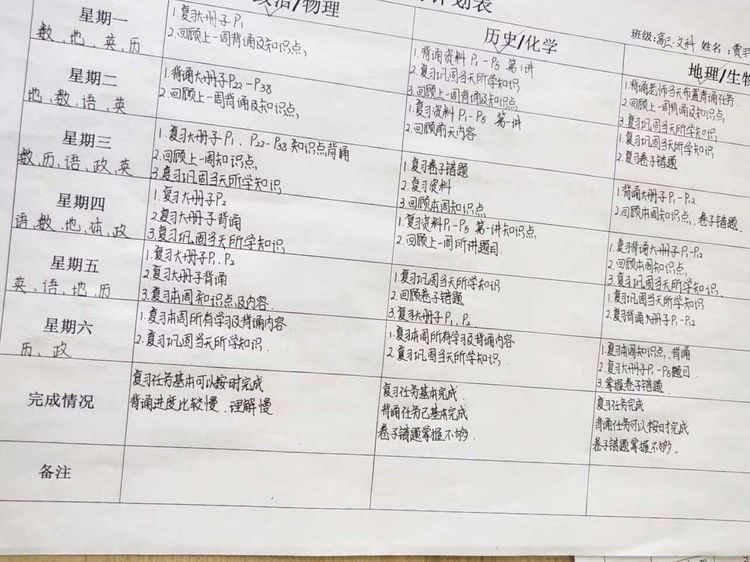 划表
政治/物理
历史/化学
班级:高三.文科 姓名:
地理/生物
星期一
数、地、英、历
1.复习大册子P1
2.回顾上一周背诵及知识点,
1.背诵资料 P1-P5 第1讲
2.复习巩固当天所学知识
3.回顾上一周背诵及知识点
1.背诵老师当天布置背诵任务.
2.回顾上一周背诵及知识点,
3.复习巩固当天所学知识
星期二
地、数、语、英
1.背诵大册子P22-P38
2.回顾上一周背诵及知识点,
1.复习资料 P1-P5 第一讲
2.回顾前天内容
1.复习巩固当天所学知识
2.复习卷子错题
星期三
数、历、语、政、英
1.复习大册子P1、P22-P38知识点背诵
2.回顾上一周知识点
3.复习巩固当天所学知识
1.复习卷子错题
2.复习资料
3.回顾本周知识点
1.背诵大册子P1-P2
2.回顾本周知识点、卷子错题.
星期四
语、数、地、政
1.复习大册子P2
2.复习大册子背诵
3.复习巩固当天所学知识
1.复习资料P1-P5 第一讲知识点
2.回顾上一周所讲题目.
1.复习背诵大册子P1-P2
2.回顾本周知识点,
3.复习巩固当天所学知识,
星期五
英、语、地、历
1.复习大册子P1、P2
2.复习大册子背诵
3.复习本周知识点及内容.
1.复习巩固当天所学知识
2.回顾卷子错题
3.复习大册子P1、P2
1.复习巩固当天所学知识
2.复习背诵大册子P1-P2
星期六
历、政
1.复习本周所有学习及背诵内容
2.复习巩固当天所学知识.
1.复习本周所有学习及背诵内容
2.复习巩固当天所学知识.
1.复习本周知识点、背诵
2.复习大册子P1-P5题目.
3.掌握卷子错题.
完成情况
复习任务基本可以按时完成
背诵进度比较慢.理解慢
复习任务基本完成.
背诵任务已基本完成
卷子错题掌握不够.
复习任务完成
背诵任务可以按时完成
卷子错题掌握不够.
备注